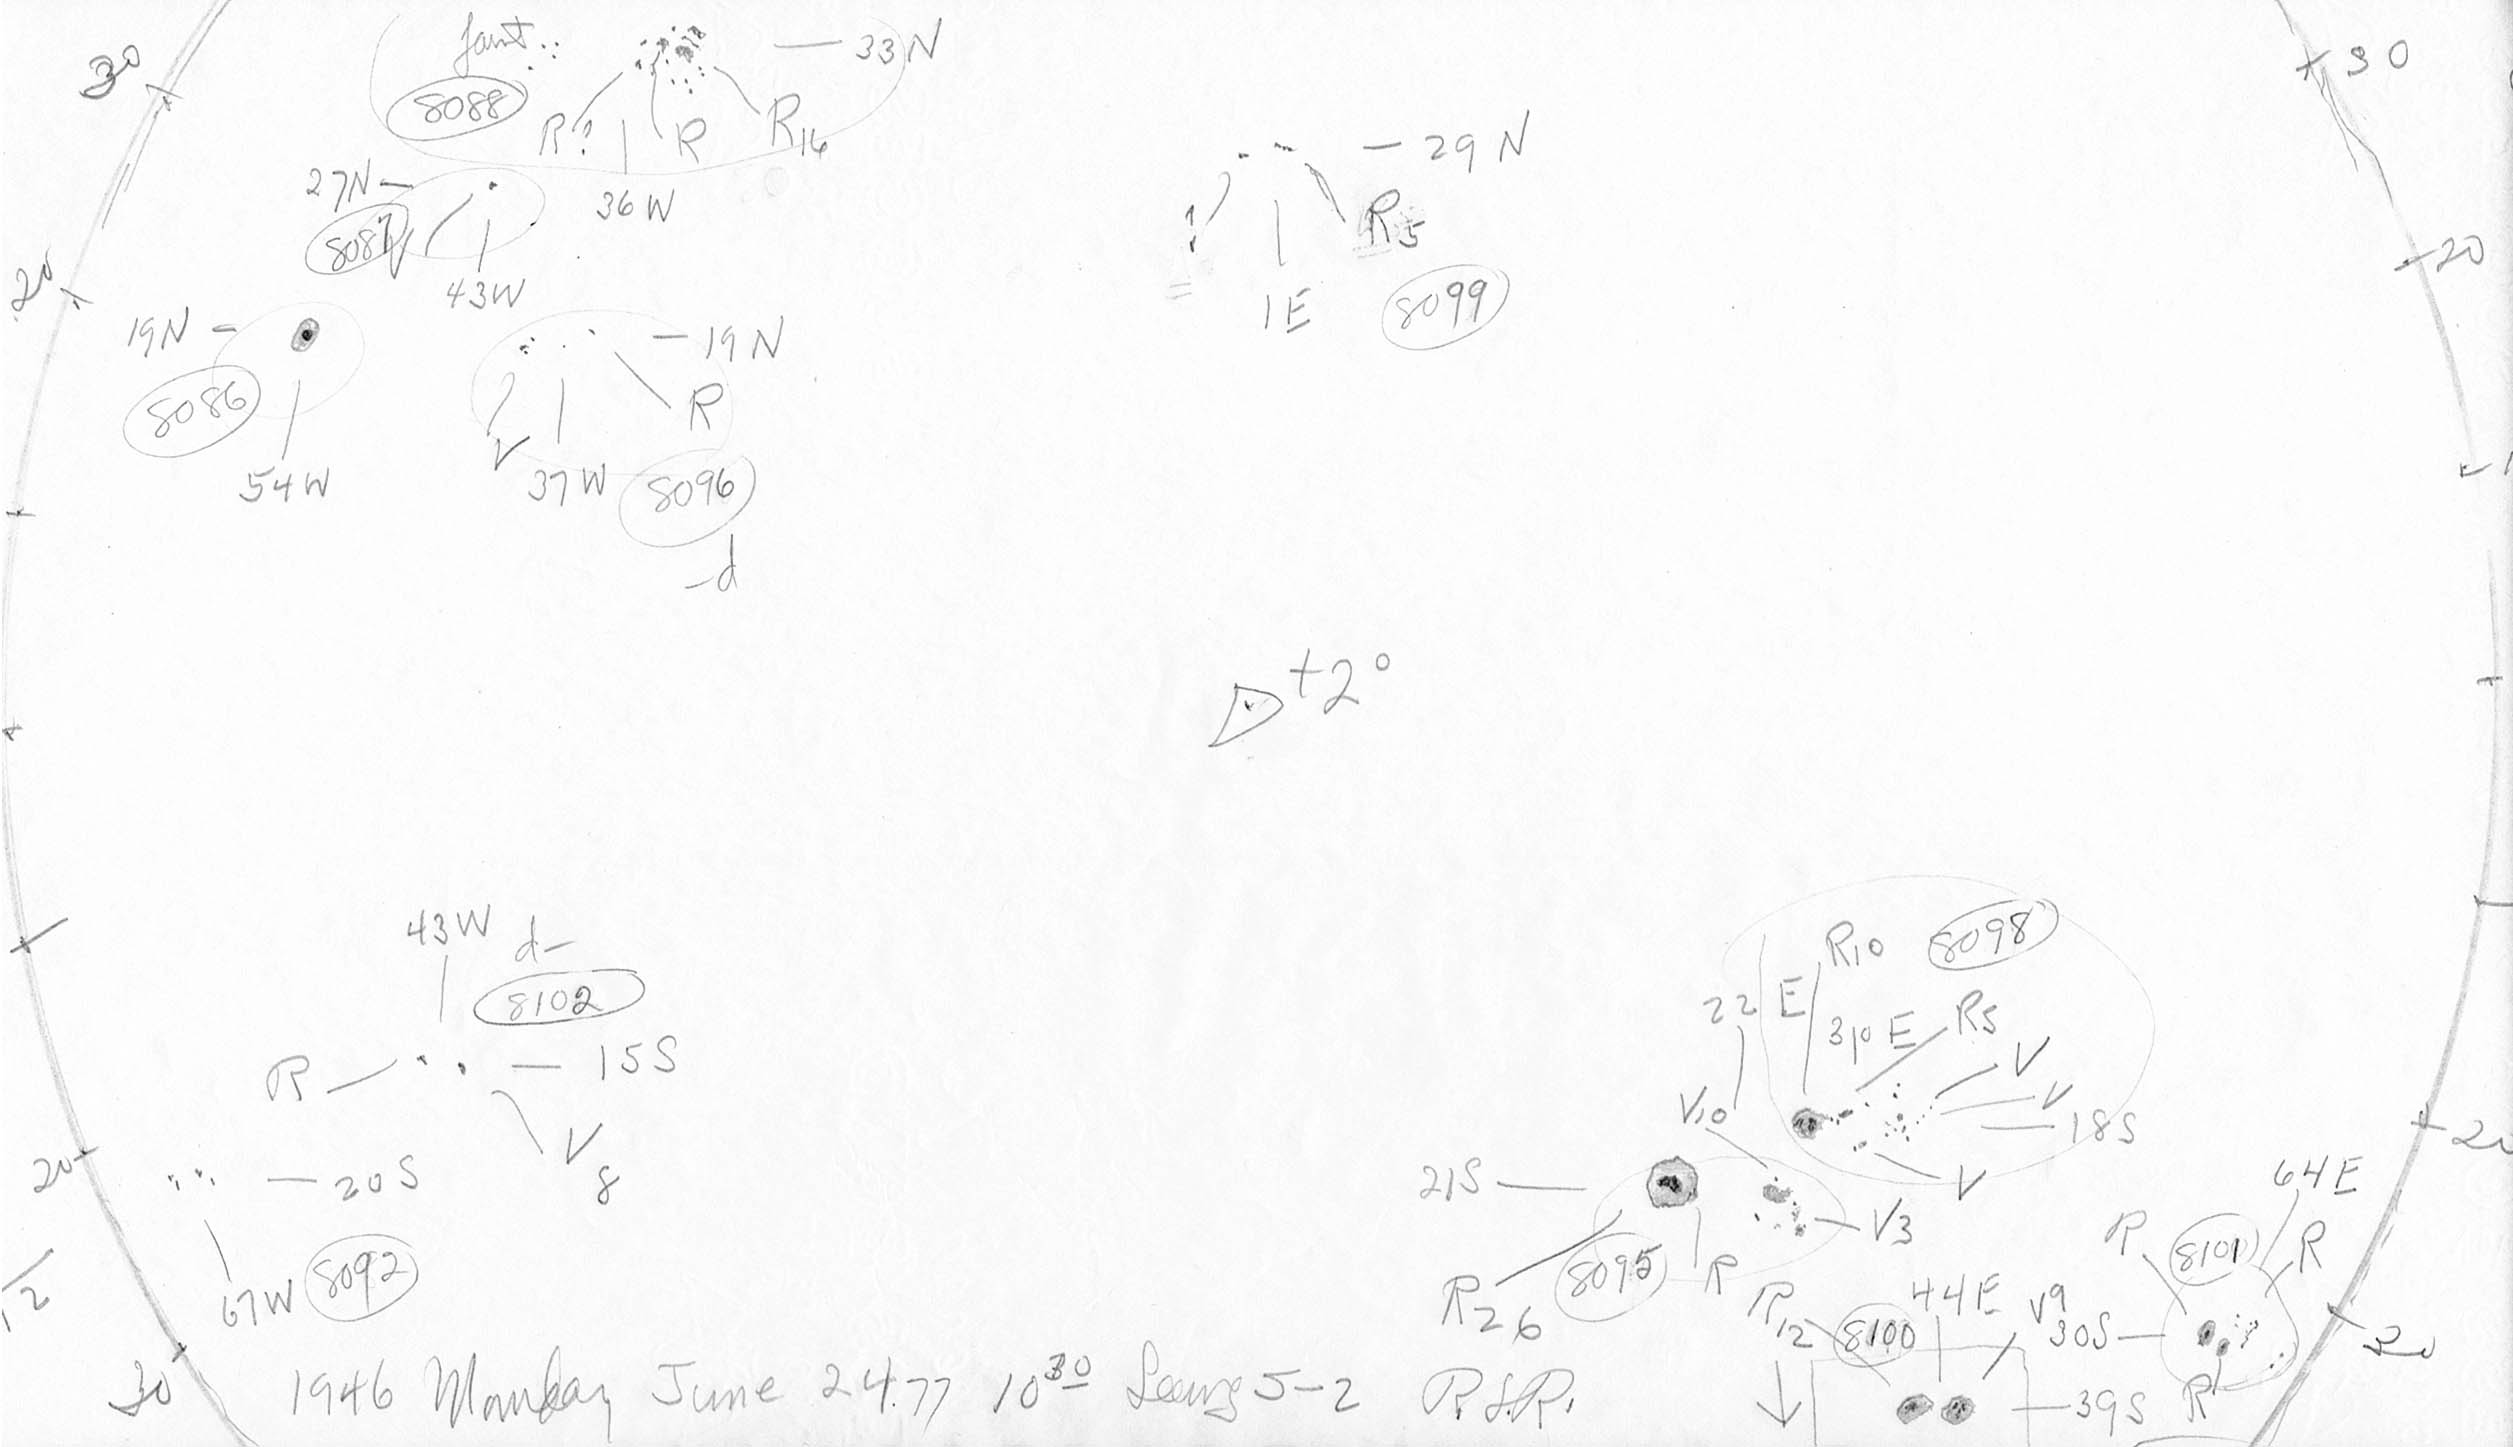 30
faint
33N
8088
R?
R
R16
36W
30
29N
27N
8087
V
43W
?
R5
1E
8099
20
20
19N
8086
54W
19N
V
R
37W
8096
d
+2°
43W
d
8102
R
15S
V
8
22E
R10
8098
31E
R5
V
V
18S
V
V10
21S
V3
R26
8095
R
20
20S
67W
8092
20
12
R
8101
64E
R
R12
8100
44E
V9
30S
30
39S
R
30
1946 Monday June 24.77 10³⁰ Seeing 5-2 R.S.R.